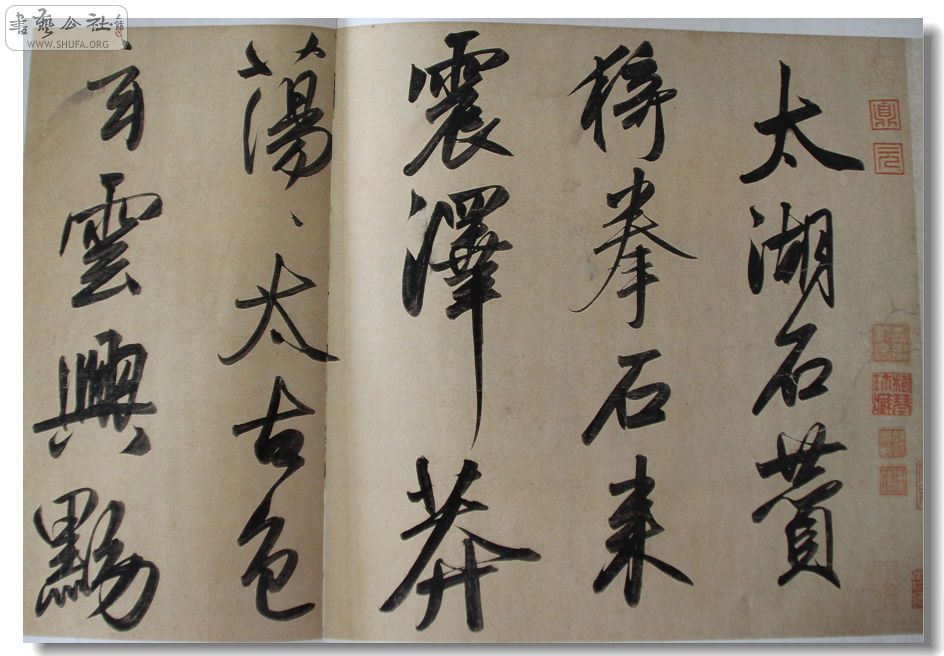 太湖石贊
猗拳石來
震澤莽
蕩、太古色
雲興黝
書藝公社
WWW.SHUFA.ORG